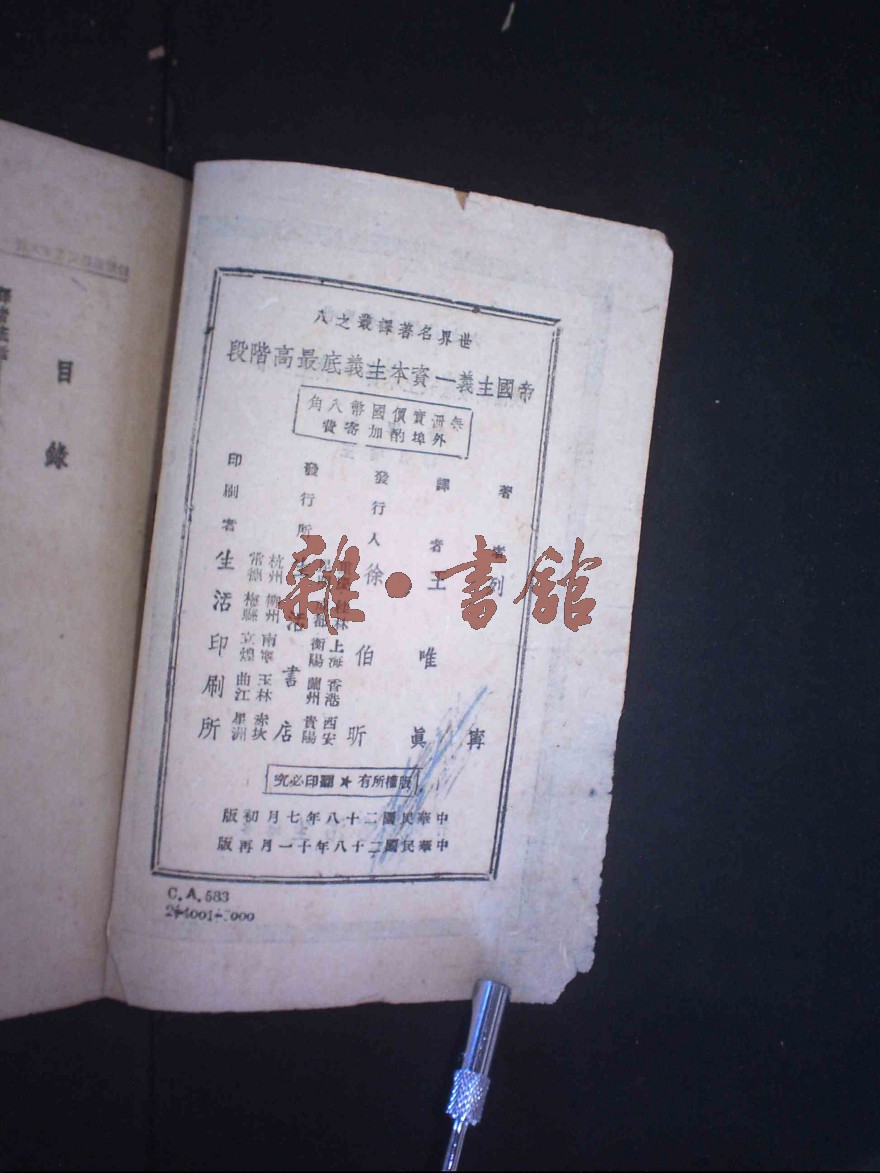 世界名著譯叢之八
帝國主義—資本主義底最高階段
每冊實價國幣八角
外埠酌加寄費
著者 列寧
譯者 王唯真
發行人 徐伯昕
發行所 生活書店
桂林
上海 香港 西安
衡陽 蘭州 貴陽
杭州 柳州 南寧 玉林 索坎
常德 梅縣 立煌 曲江 星洲
印刷者 生活印刷所
版權所有★翻印必究
中華民國二十八年七月初版
中華民國二十八年十一月再版
C.A.583
目錄
雜·書館